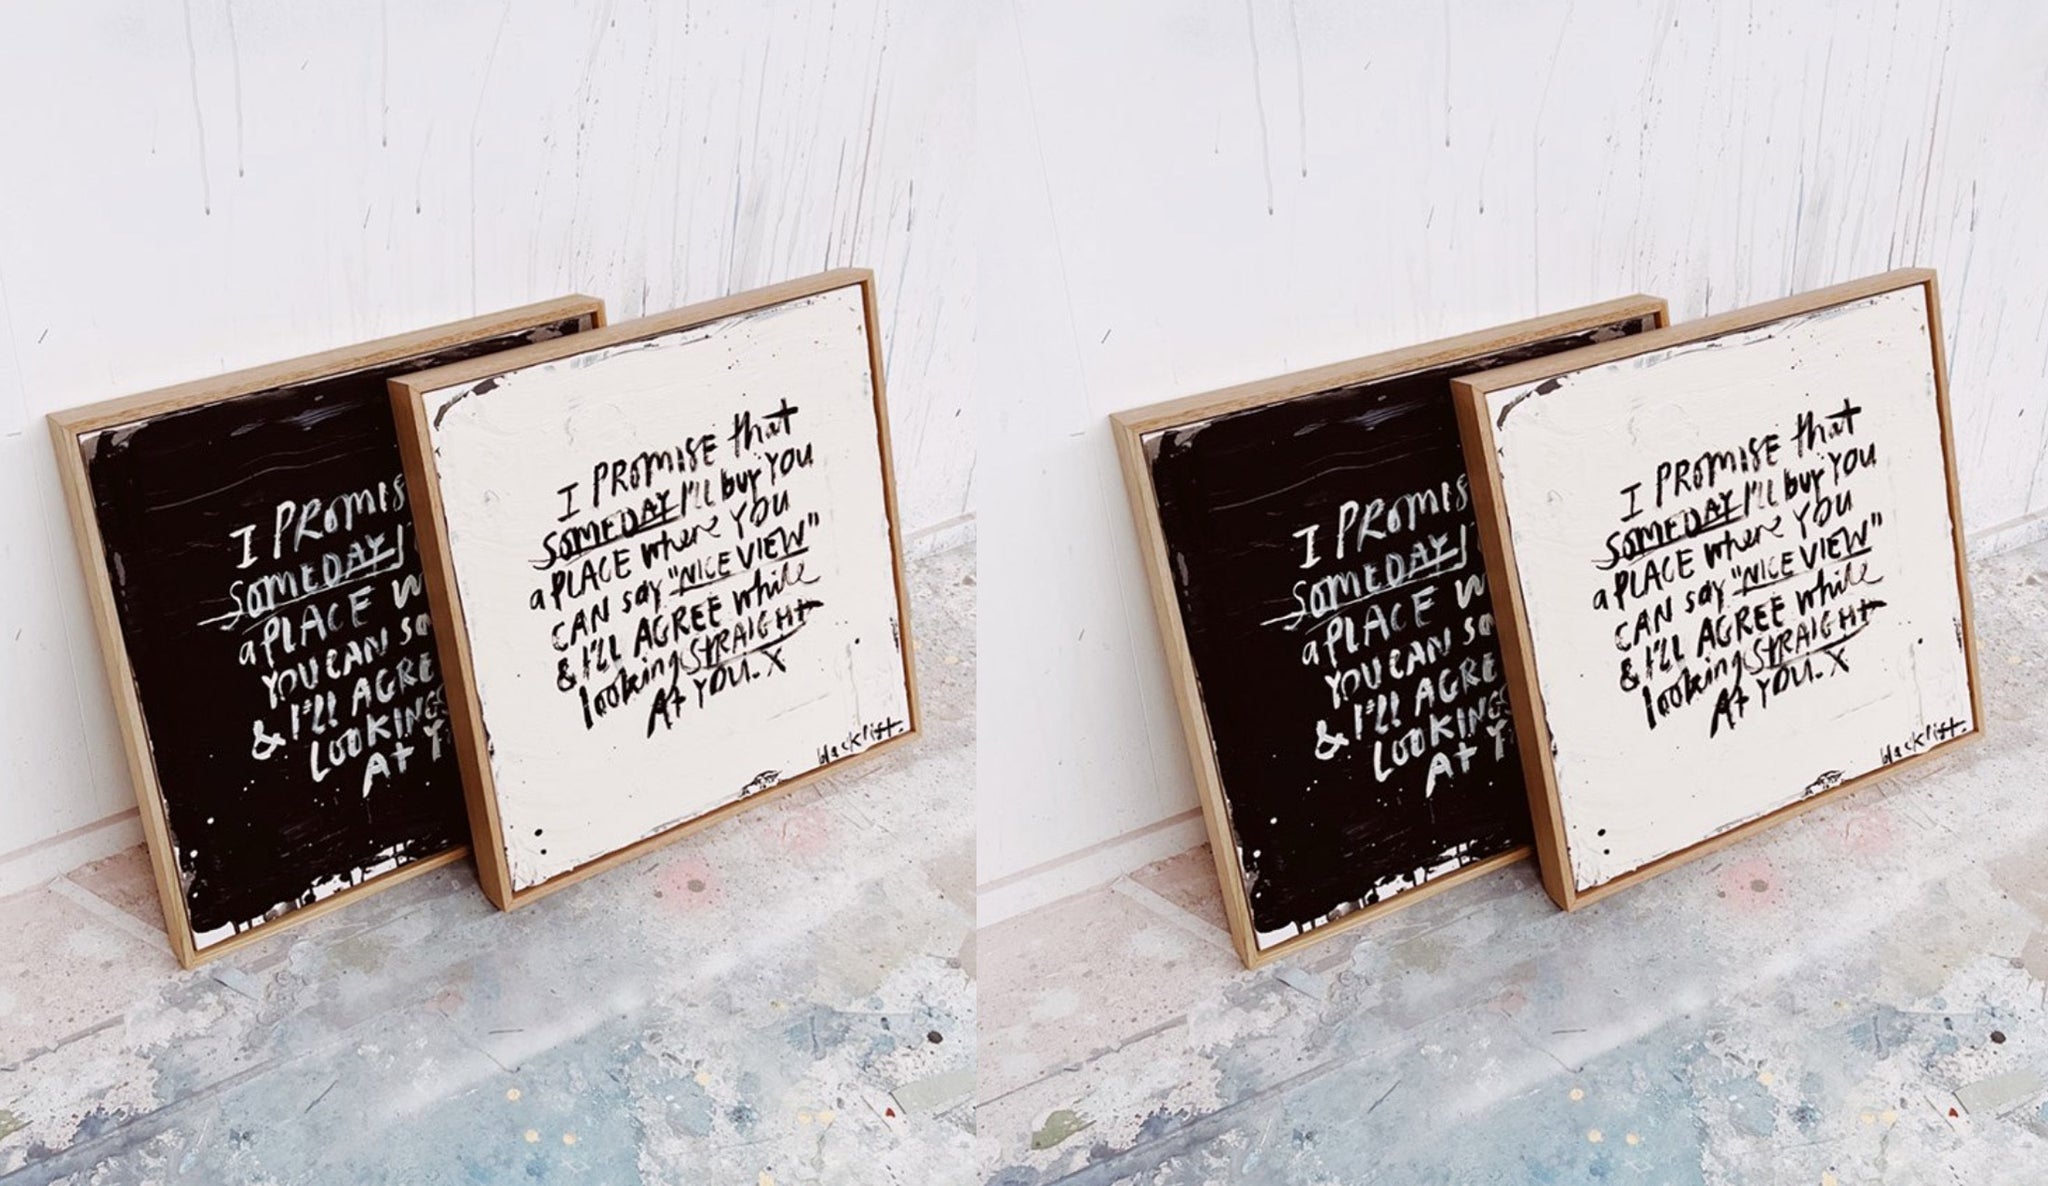 I PROMIS
SOMEDAY I
a PLACE W
YOU CAN SA
& I'LL AGRE
LOOKING
At Y
I PROMISE that
SOMEDAY I'll buy YOU
a PLACE where YOU
CAN say "NICE VIEW"
& I'LL AGREE while
looking STRAIGHt
At YOU. X
blacklist.
I PROMIS
SOMEDAY I
a PLACE W
YOU CAN SA
& I'LL AGRE
LOOKING
At Y
I PROMISE that
SOMEDAY I'll buy YOU
a PLACE where YOU
CAN say "NICE VIEW"
& I'LL AGREE while
looking STRAIGHt
At YOU. X
blacklist.